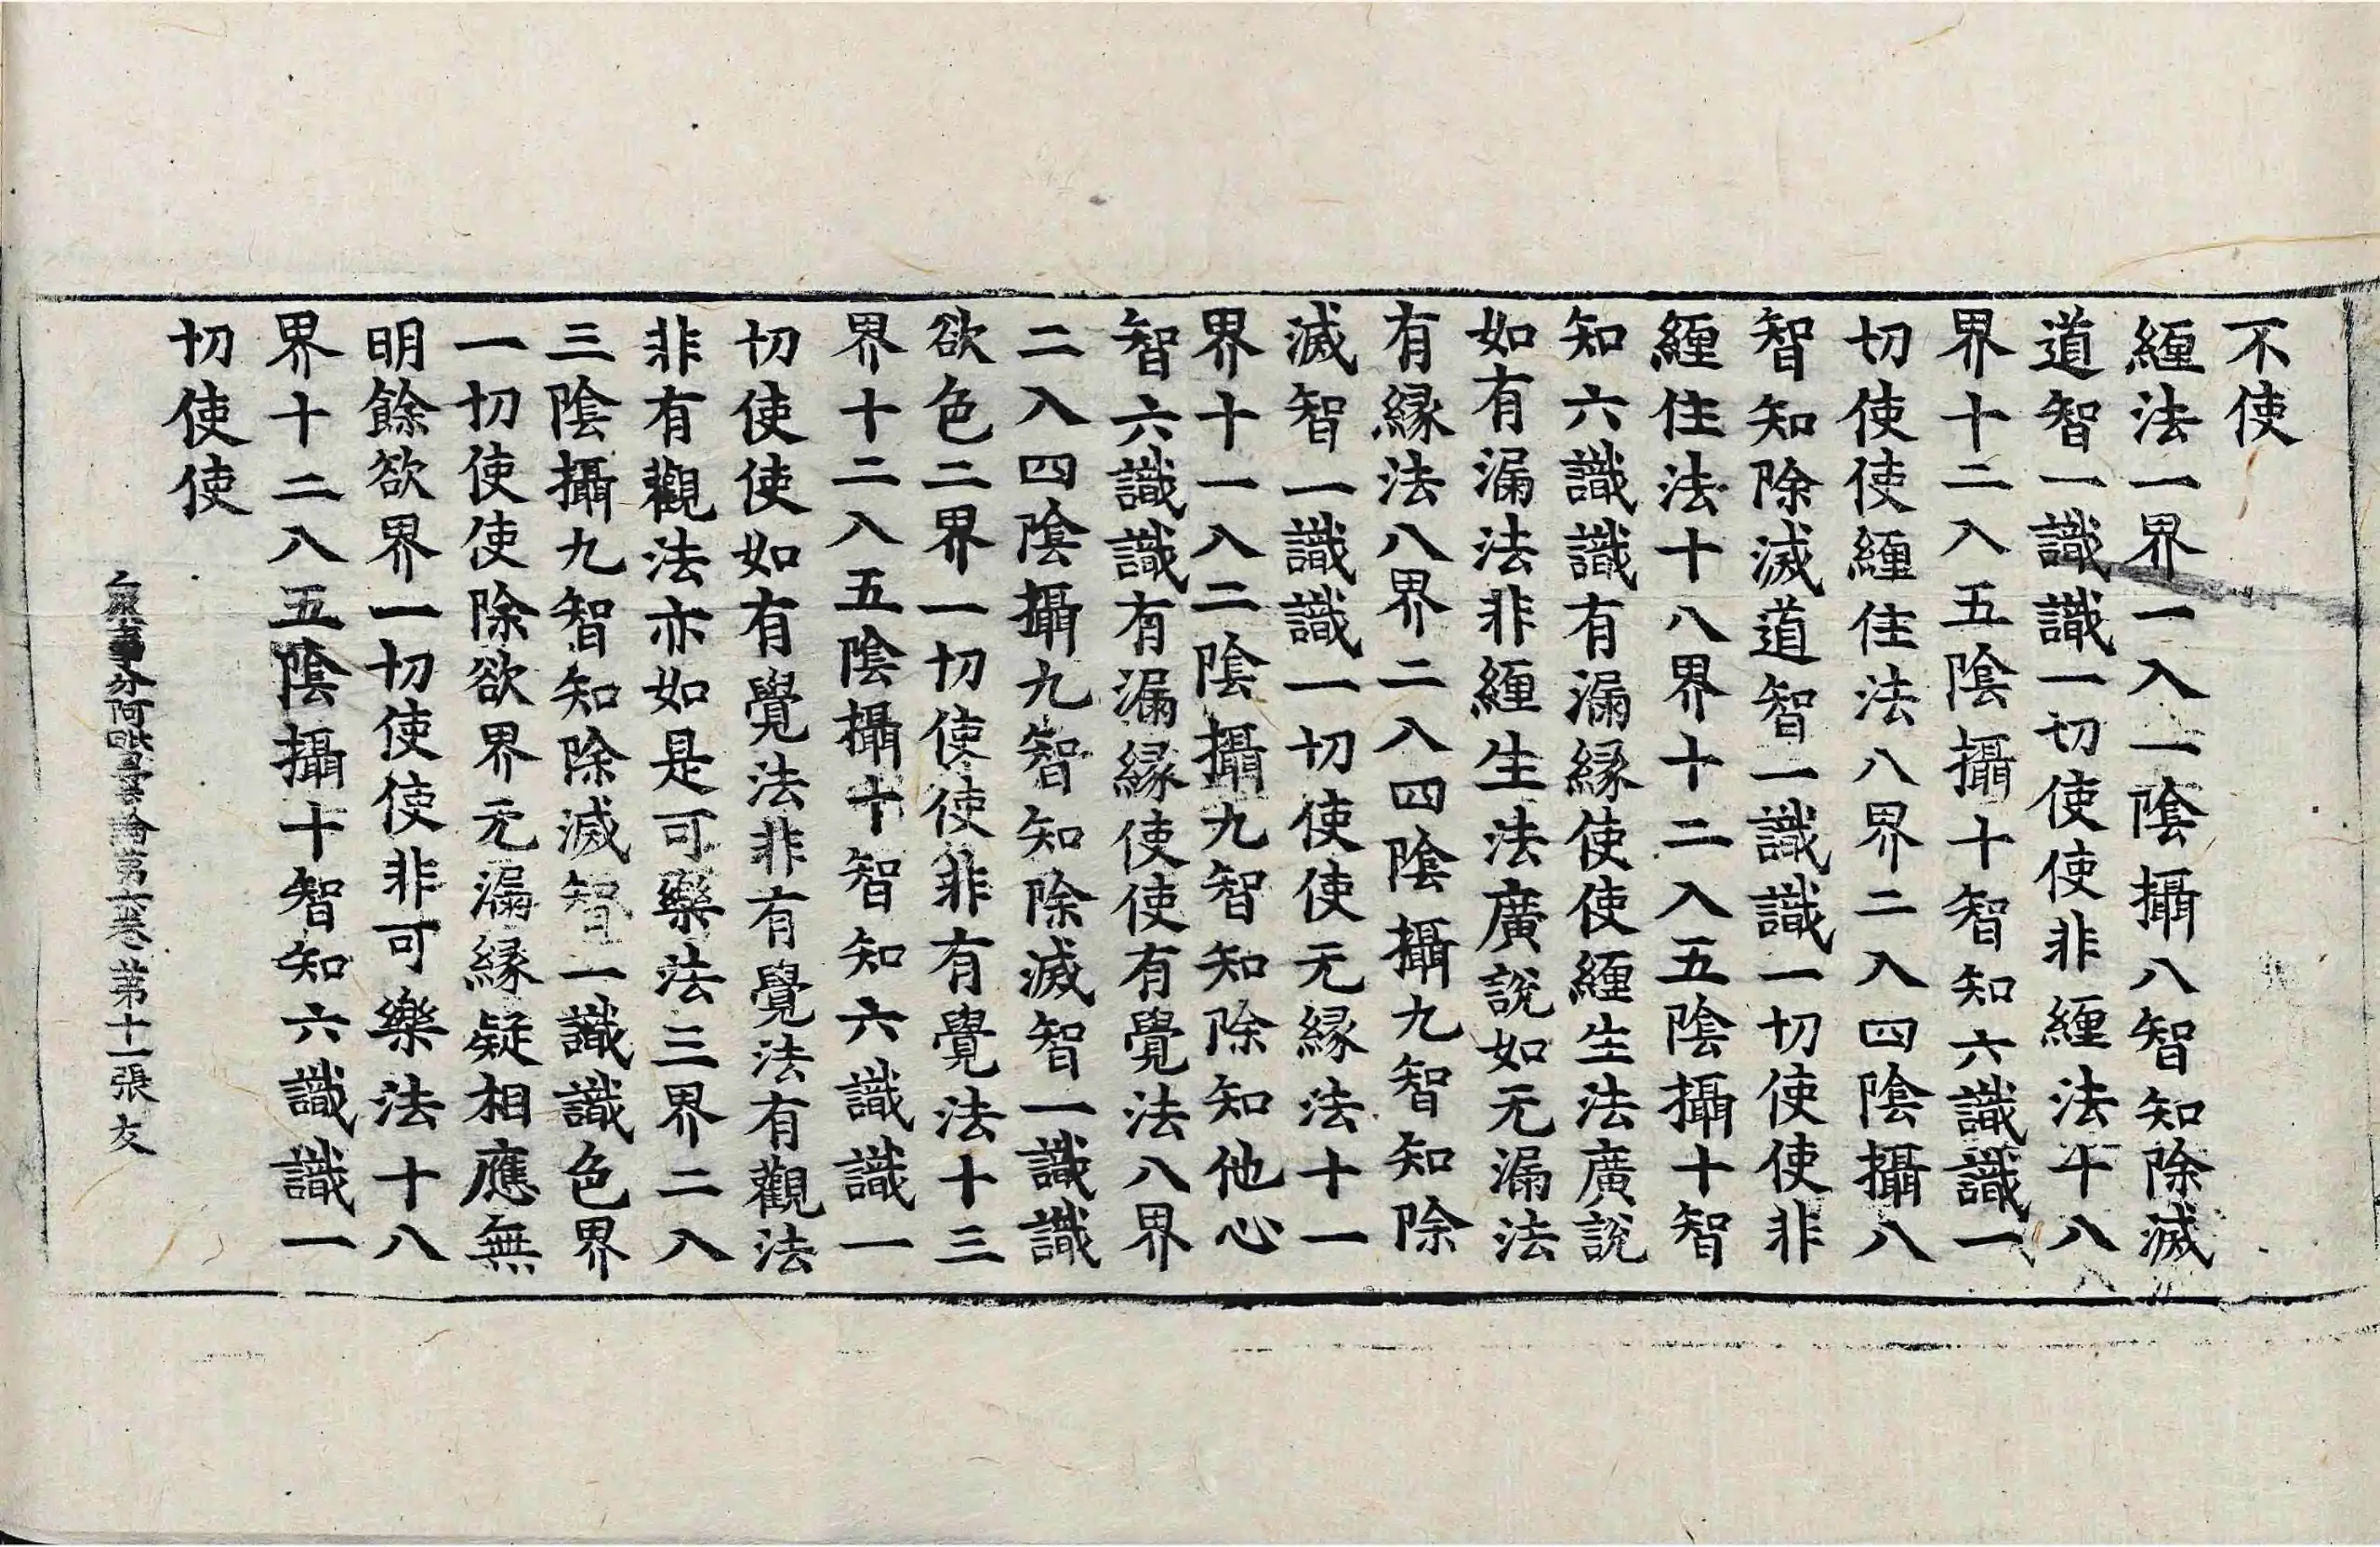 不使
纏法一界一入一陰攝八智知除滅
道智一識識一切使使非纏法十八
界十二入五陰攝十智知六識識一
切使使纏住法八界二入四陰攝八
智知除滅道智一識識一切使使非
纏住法十八界十二入五陰攝十智
知六識識有漏緣使使纏生法廣說
如有漏法非纏生法廣說如无漏法
有緣法八界二入四陰攝九智知除
滅智一識識一切使使无緣法十一
界十一入二陰攝九智知除知他心
智六識識有漏緣使使有覺法八界
二入四陰攝九智知除滅智一識識
欲色二界一切使使非有覺法十三
界十二入五陰攝十智知六識識一
切使使如有覺法非有覺法有觀法
非有觀法亦如是可樂法三界二入
三陰攝九智知除滅智一識識色界
一切使使除欲界无漏緣疑相應無
明餘欲界一切使使非可樂法十八
界十二入五陰攝十智知六識識一
切使使
分阿毗曇論第六卷 第十一張 友